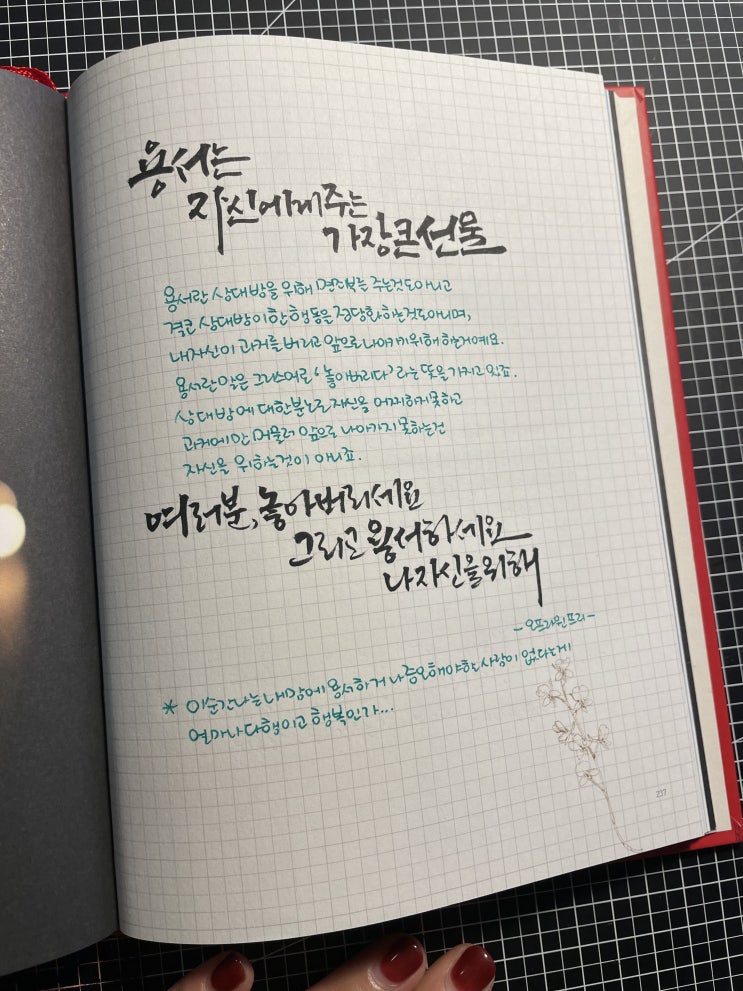 용서는
자신에게주는
가장큰선물
용서란 상대방을 위해 면죄부를 주는것도아니고
결코 상대방이한행동을 정당화하는것도아니며,
내자신이 과거를버리고 앞으로나아가기위해 하는거예요.
용서란말은 그리스어로 '놓아버리다' 라는 뜻을 가지고있죠.
상대방에 대한분노로 자신을 어찌하지못하고
과거에만 머물러 앞으로 나아가지 못하는건
자신을 위하는것이 아니죠.
여러분, 놓아버리세요
그리고 용서하세요
나자신을위해
-오프라윈프리-
* 이순간나는 내맘에 용서하거나 증오해야하는사람이 없다는게
얼마나 다행이고 행복인가...
237